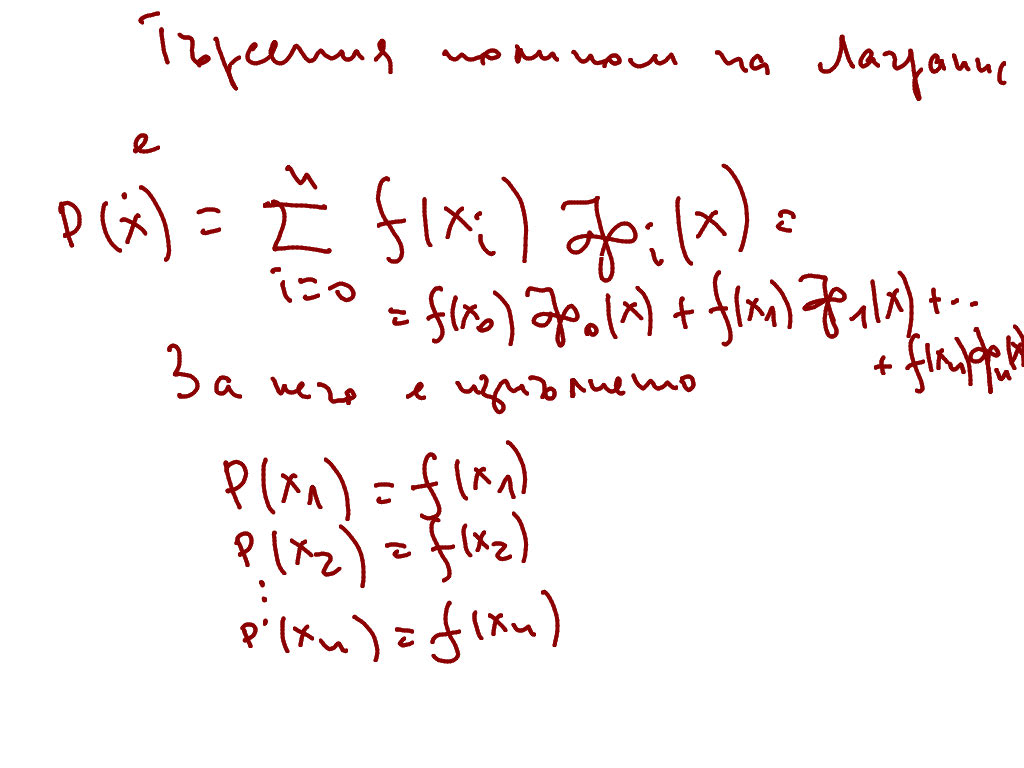 Търсения полином на Лагранж
е
P(x) = \sum_{i=0}^{n} f(x_i) \mathcal{J}_i(x) =
= f(x_0) \mathcal{J}_0(x) + f(x_1) \mathcal{J}_1(x) + ...
+ f(x_n) \mathcal{J}_n(x)
За него е изпълнено
P(x_1) = f(x_1)
P(x_2) = f(x_2)
⋮
P(x_n) = f(x_n)